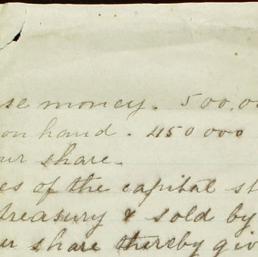 se money. 500,00
on hand. 450000
ur share.
es of the capital st
treasury & sold by
ur share thereby giv